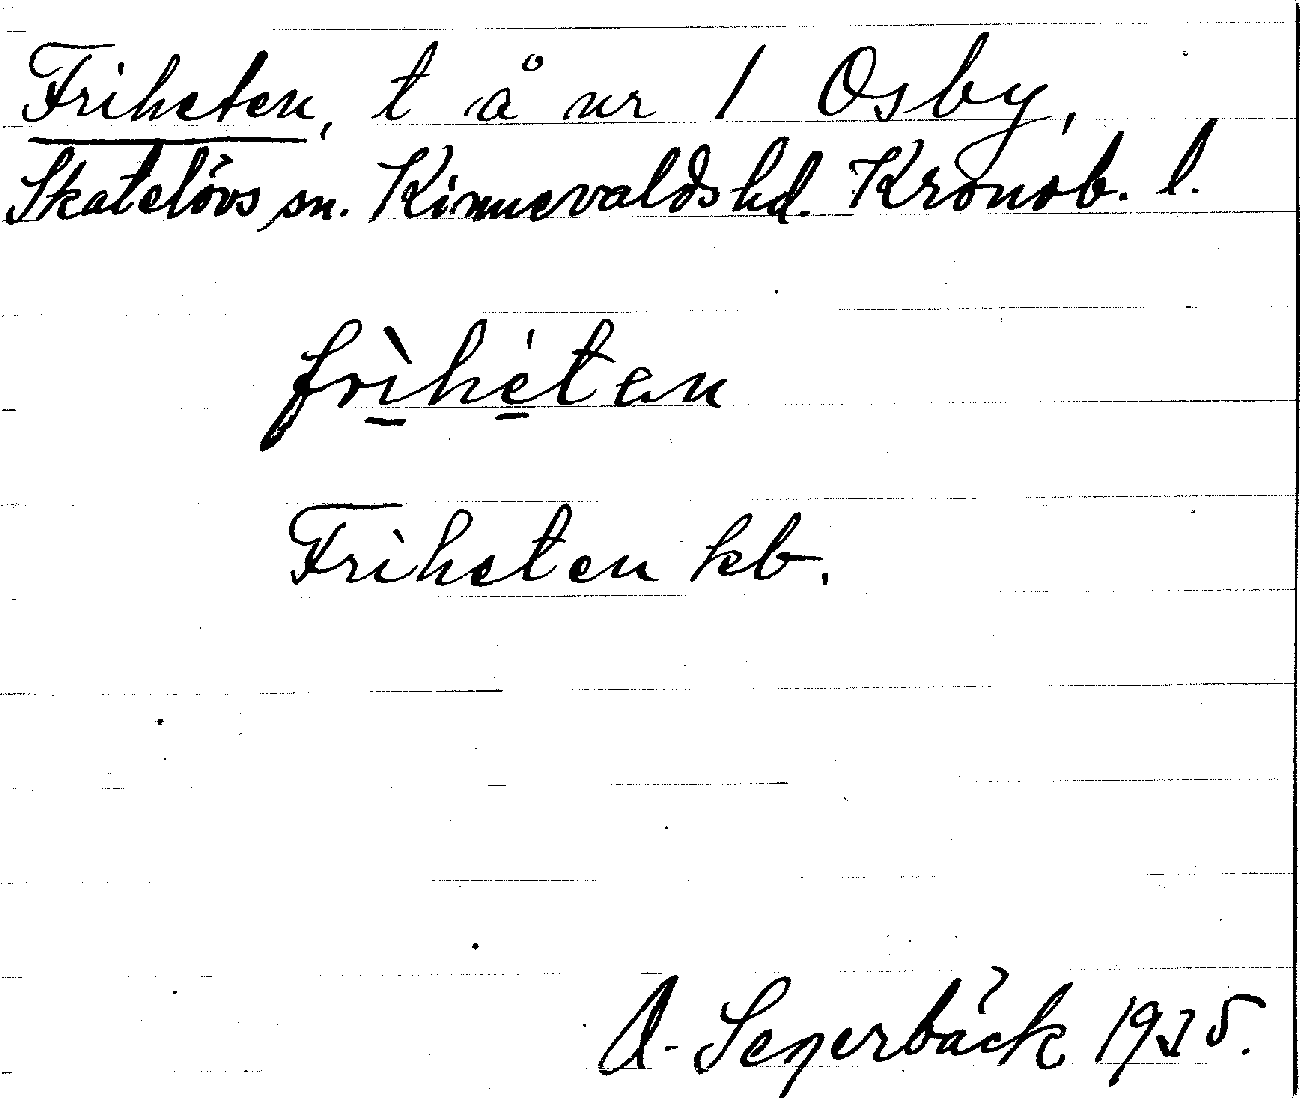 Friheten, t å nr 1 Osby,
Skatelövs sn. Kinnevalds hd. Kronob. l.
frìhéten
Friheten kb.
A. Segerbäck 1935.